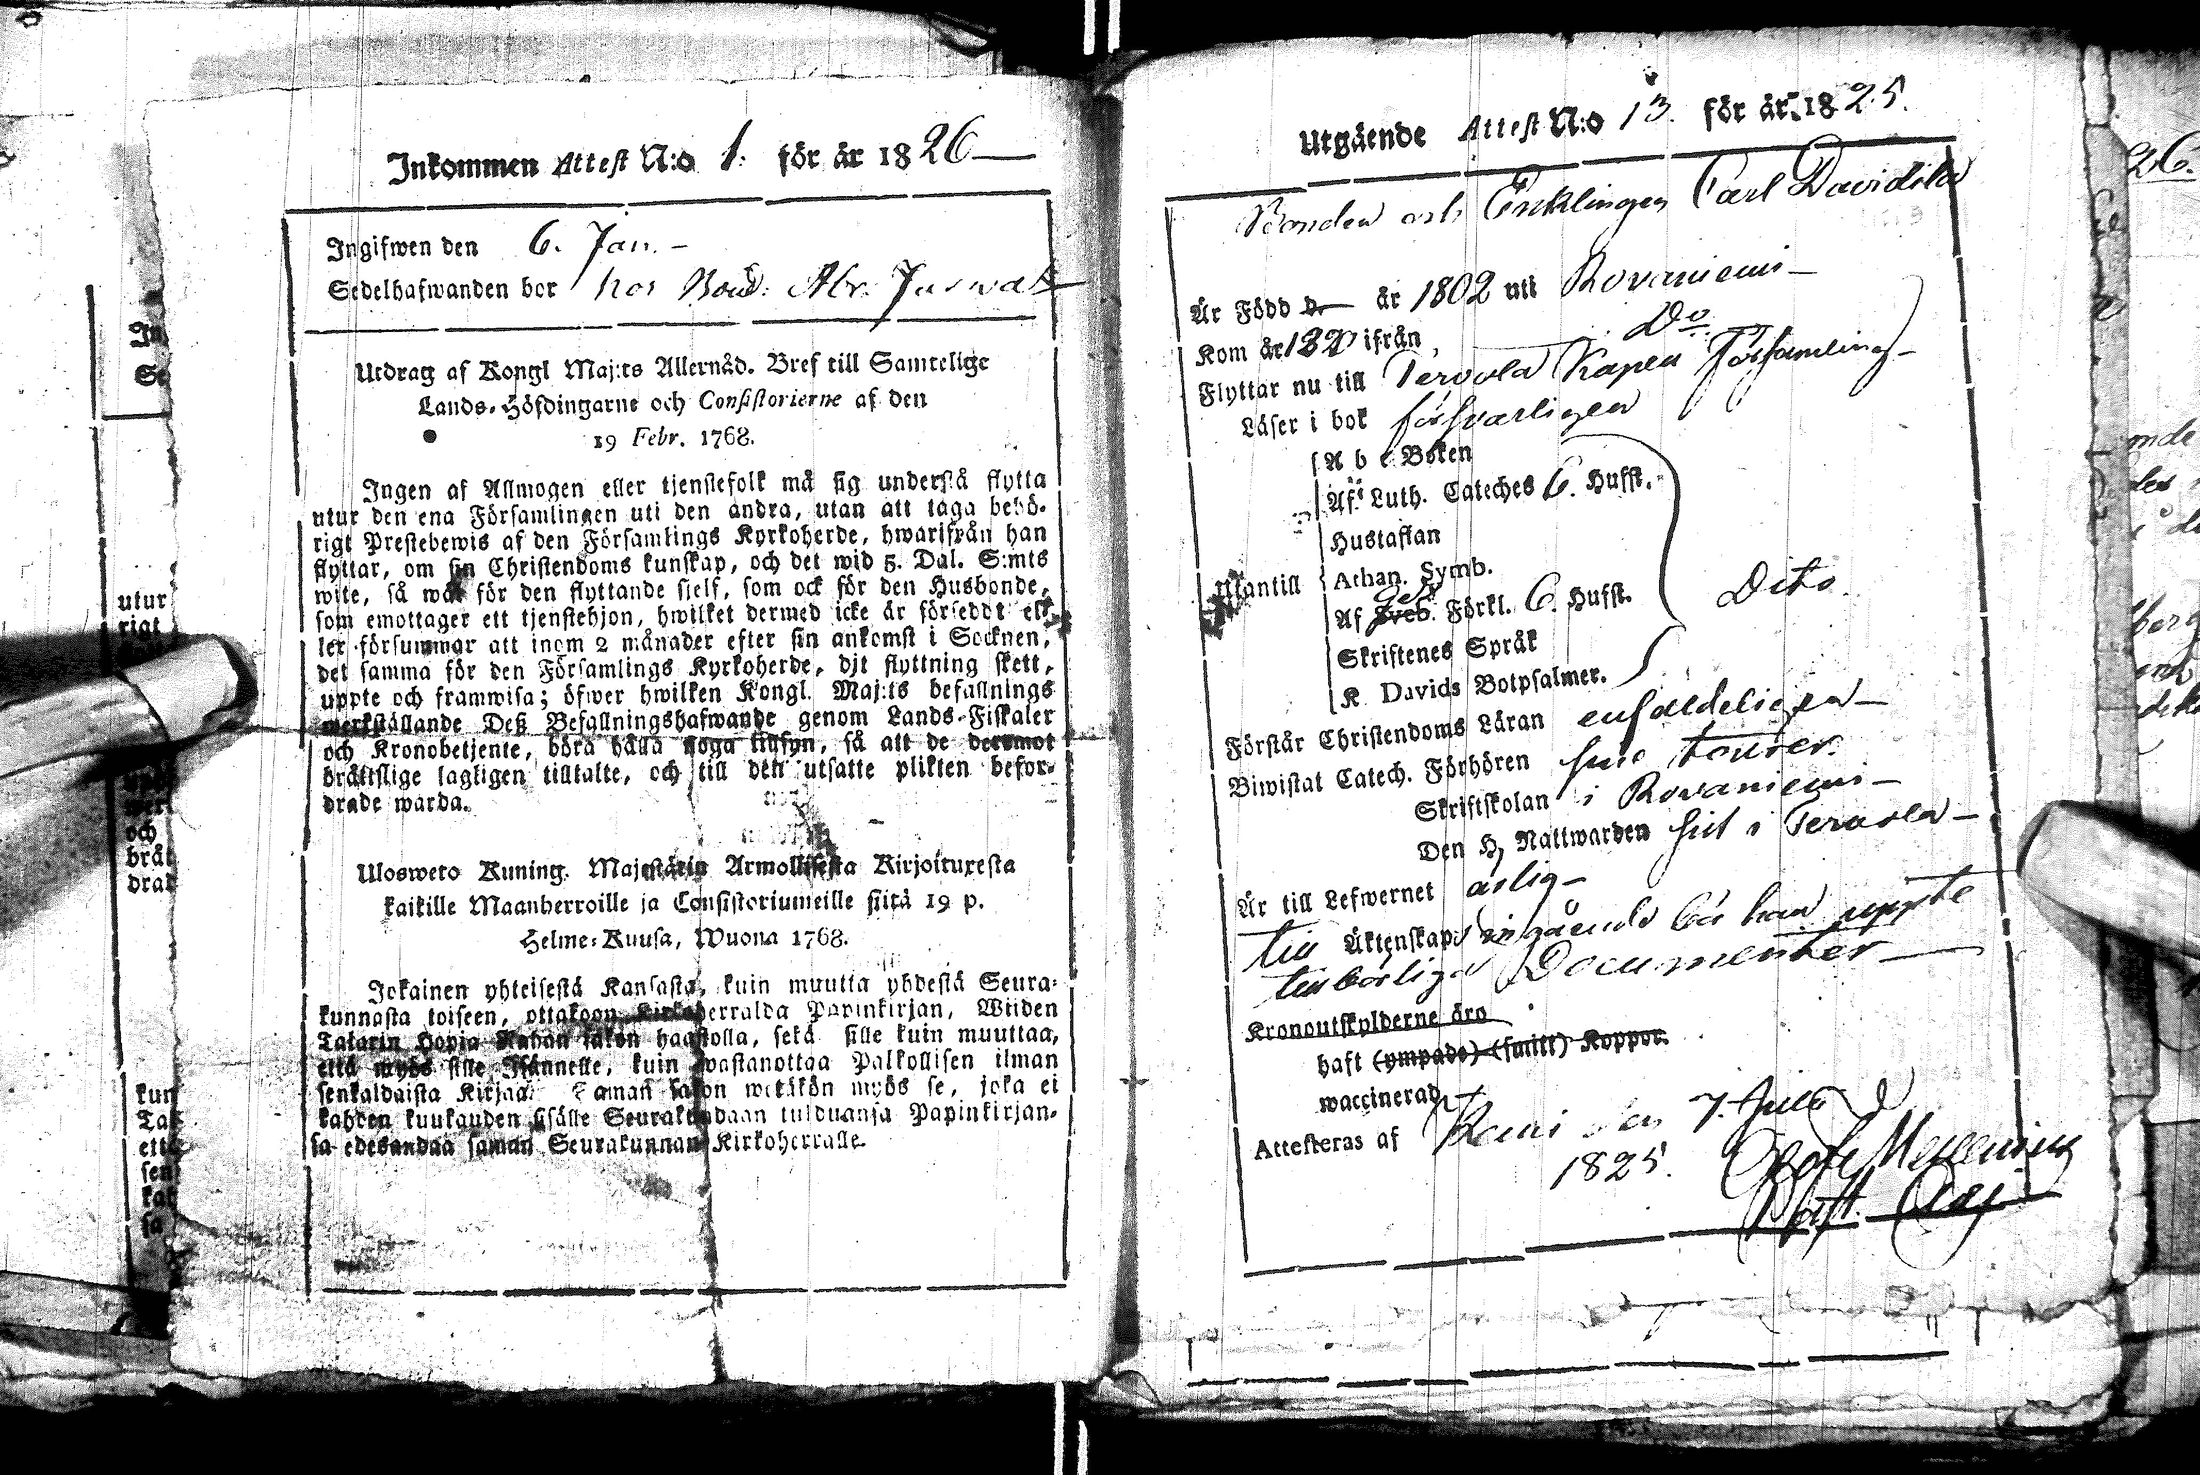 Inkommen Attest N:o 1. för år 1826
Ingifwen den 6. Jan.
Sedelhafwanden bor hos Bond. Abr.
Utdrag af Kongl Maj:ts Allernåd. Bref till Samtelige
Lands-Höfdingarne och Consistorierne af den
19 Febr. 1768.
Ingen af Allmogen eller tjenstefolk må sig understå flytta
utur den ena Församlingen uti den andra, utan att taga behö-
rigt Prestebewis af den Församlings Kyrkoherde, hwarifrån han
flyttar, om sin Christendoms kunskap, och det wid 5. Dal. S:mts
wite, så wäl för den flyttande sjelf, som ock för den Husbonde,
som emottager ett tjenstehjon, hwilket dermed icke är försedt ell-
ler försummar att inom 2 månader efter sin ankomst i Socknen,
det samma för den Församlings Kyrkoherde, djt flyttning skett,
uppte och framwisa; öfwer hwilken Kongl. Maj:ts befallnings
werkställande Deß Befallningshafwande genom Lands-Fiskaler
och Kronobetjente, böra hålla noga tillsyn, så att de deremot
brältslige lagligen tilltalte, och till den utsatte plikten befor-
drade warda.
Ulosweto Kuning. Majestätin Armollisesta Kirjoituxesta
kaikille Maanherroille ja Consistoriumeille siitä 19 p.
Helme-Kuusa, Wuona 1768.
Jokainen yhteisestä Kansasta, kuin muutta yhdestä Seura-
kunnasta toiseen, ottakoon Kirkoherralda Papinkirjan, Wiiden
Talarin Hopia Rahan sakon haastolla, sekä sille kuin muuttaa,
että myös sille Isännelle, kuin wastanottaa Palkollisen ilman
senkaldaista Kirjaa. Saman sakon wetäkön myös se, joka ei
kahden kuukauden sisälle Seurakundaan tulduansa Papinkirjan-
sa edesandaa saman Seurakunnan Kirkoherralle.
Utgående Attest N:o 13. för år 1825.
Bonden och Enklingen Carl Davidsson
Är Född år 1802 uti Rovaniemi
Kom år 182 ifrån Do
Flyttar nu till Tervola Kapell Församling
Läser i bok försvarligen
A b c Boken
Af Luth. Cateches 6. Hufst.
Hustaflan
Utantill Athan. Symb.
Af Sveb. Förkl. 6. Hufst. Dito
Skriftenes Språk
K Davids Botpsalmer.
Förstår Christendoms Läran enfaldeligen
Biwistat Catech. Förhören sine tourer.
Skriftskolan i Rovaniemi
Den H. Nattwarden sist i Tervola
Är till Lefwernet ärlig
till Äktenskaps ingående bör han uppte
tillbörliga Documenter
Kronoutskylderne äro
haft (ympade) (smitt) Koppor.
waccinerad
Attesteras af Kemi den 7. Julii
1825.